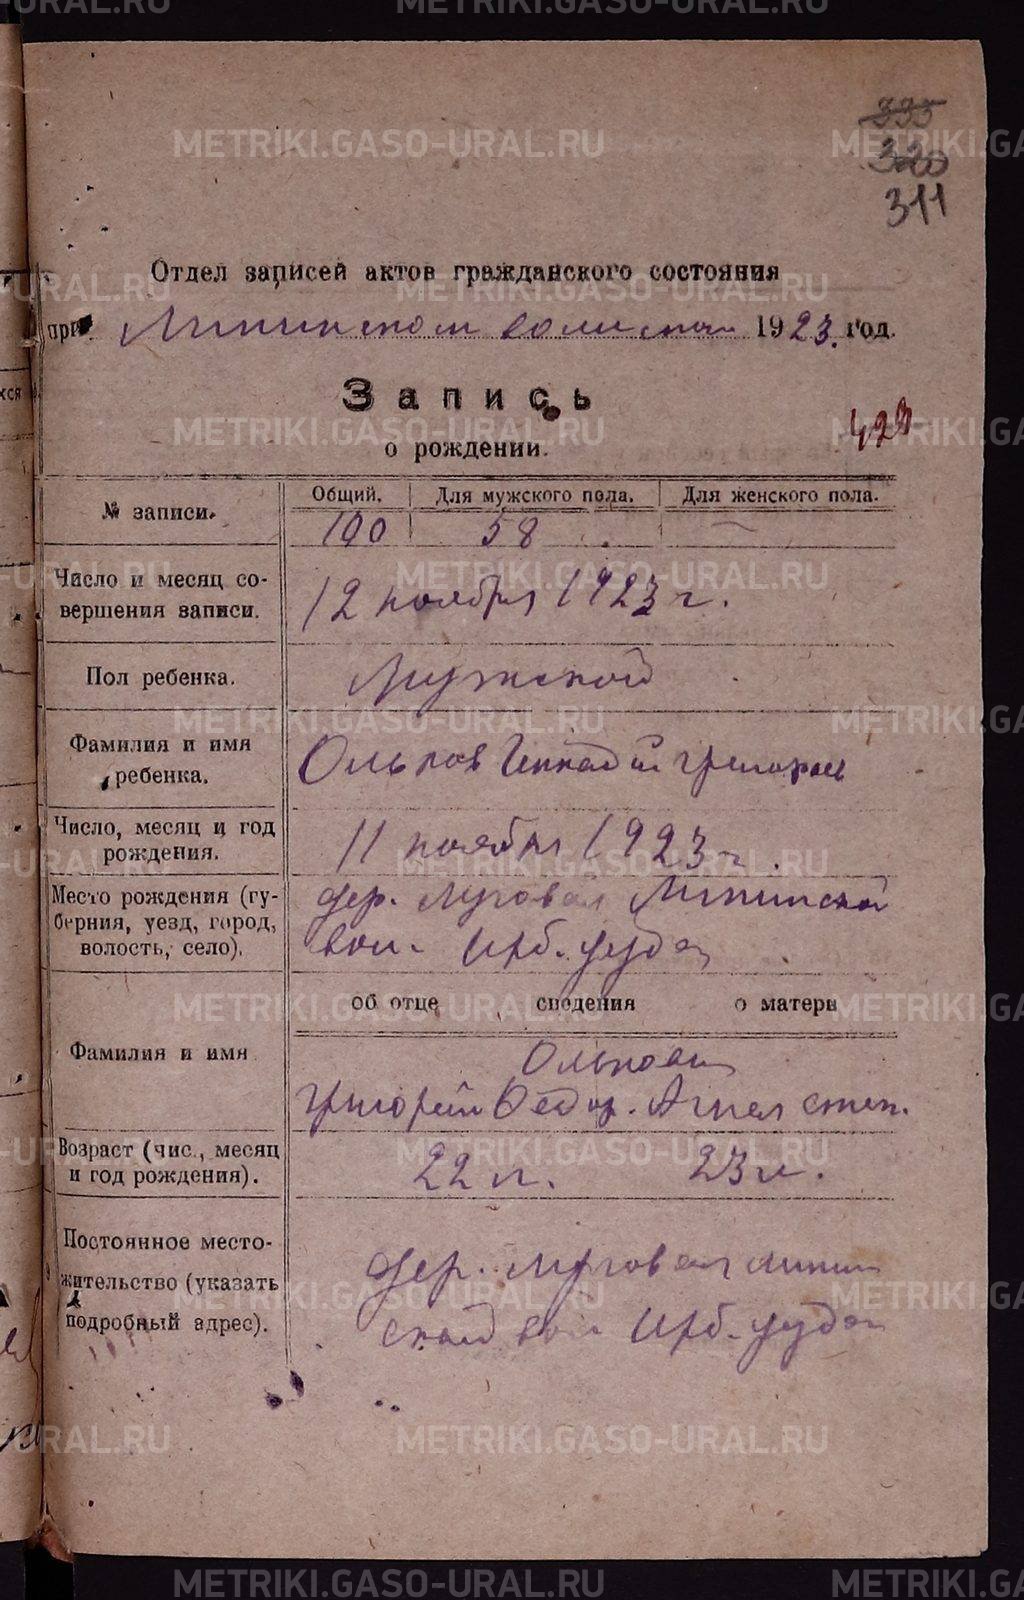 335
320
311
Отдел записей актов гражданского состояния
при Липинском волиском 1923 год.
Запись
о рождении.
423
№ записи.
Общий.
Для мужского пола.
Для женского пола.
100
58
—
Число и месяц со-
вершения записи.
12 ноября 1923 г.
Пол ребенка.
Мужской
Фамилия и имя
ребенка.
Ольков Геннадий Григорьев
Число, месяц и год
рождения.
11 ноября 1923 г.
Место рождения (гу-
берния, уезд, город,
волость, село).
дер. Луговая Липинской
вол. Ирб. уезда
об отце сведения о матери
Фамилия и имя
Ольковы
Григорий Федор. Агнея степ.
Возраст (чис., месяц
и год рождения).
22 л. 23 л.
Постоянное место-
жительство (указать
подробный адрес).
дер. Луговая Липин
ской вол Ирб. уезда
METRIKI.GASO-URAL.RU